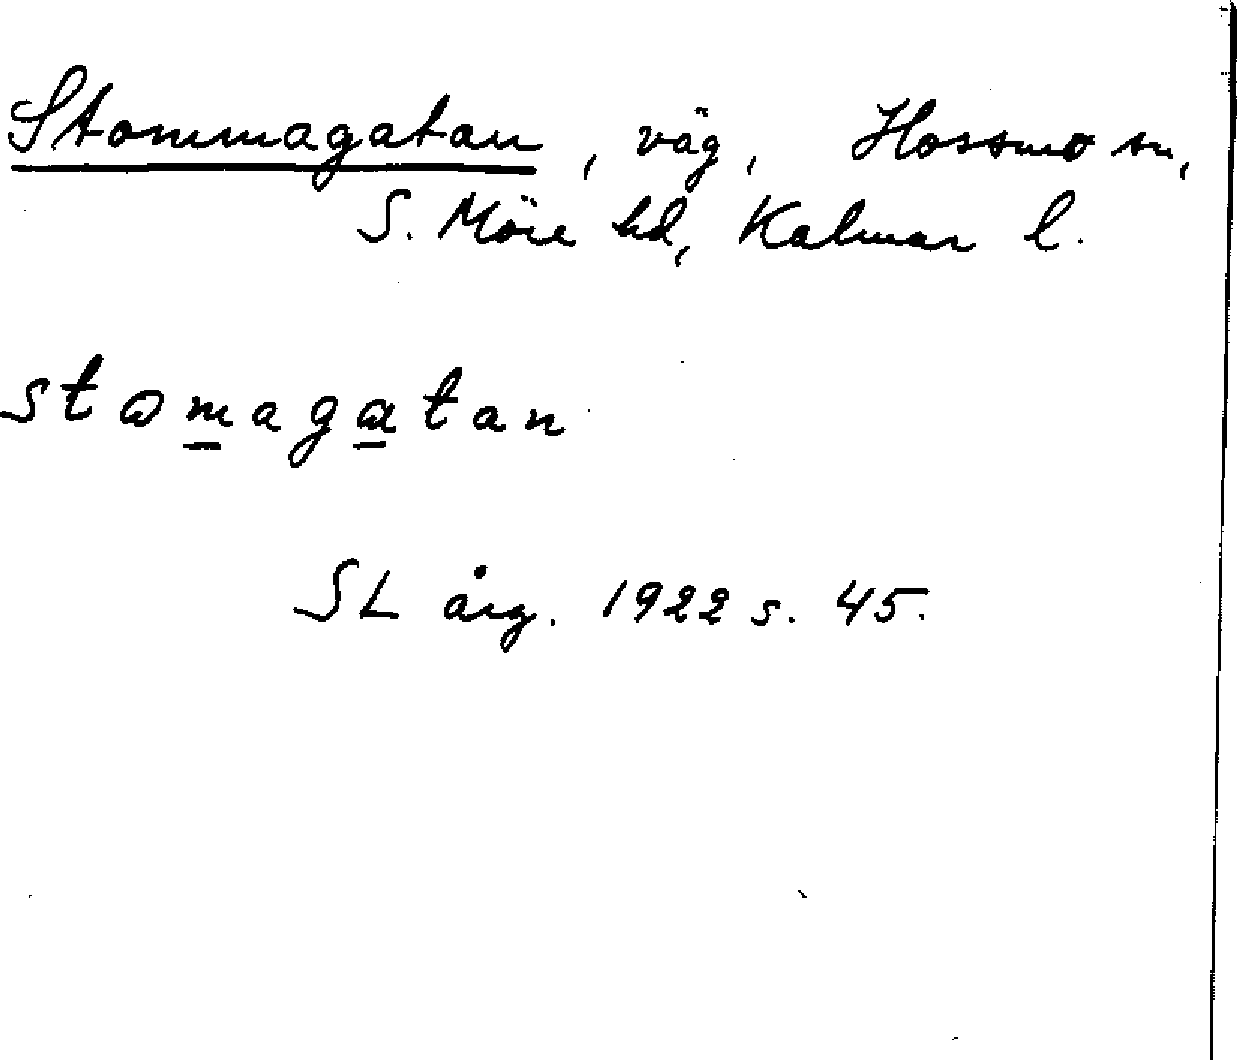 Stommagatan, väg, Hossmo sn,
S. Möre hd, Kalmar l.
stomagatan
SL årg. 1922 s. 45.